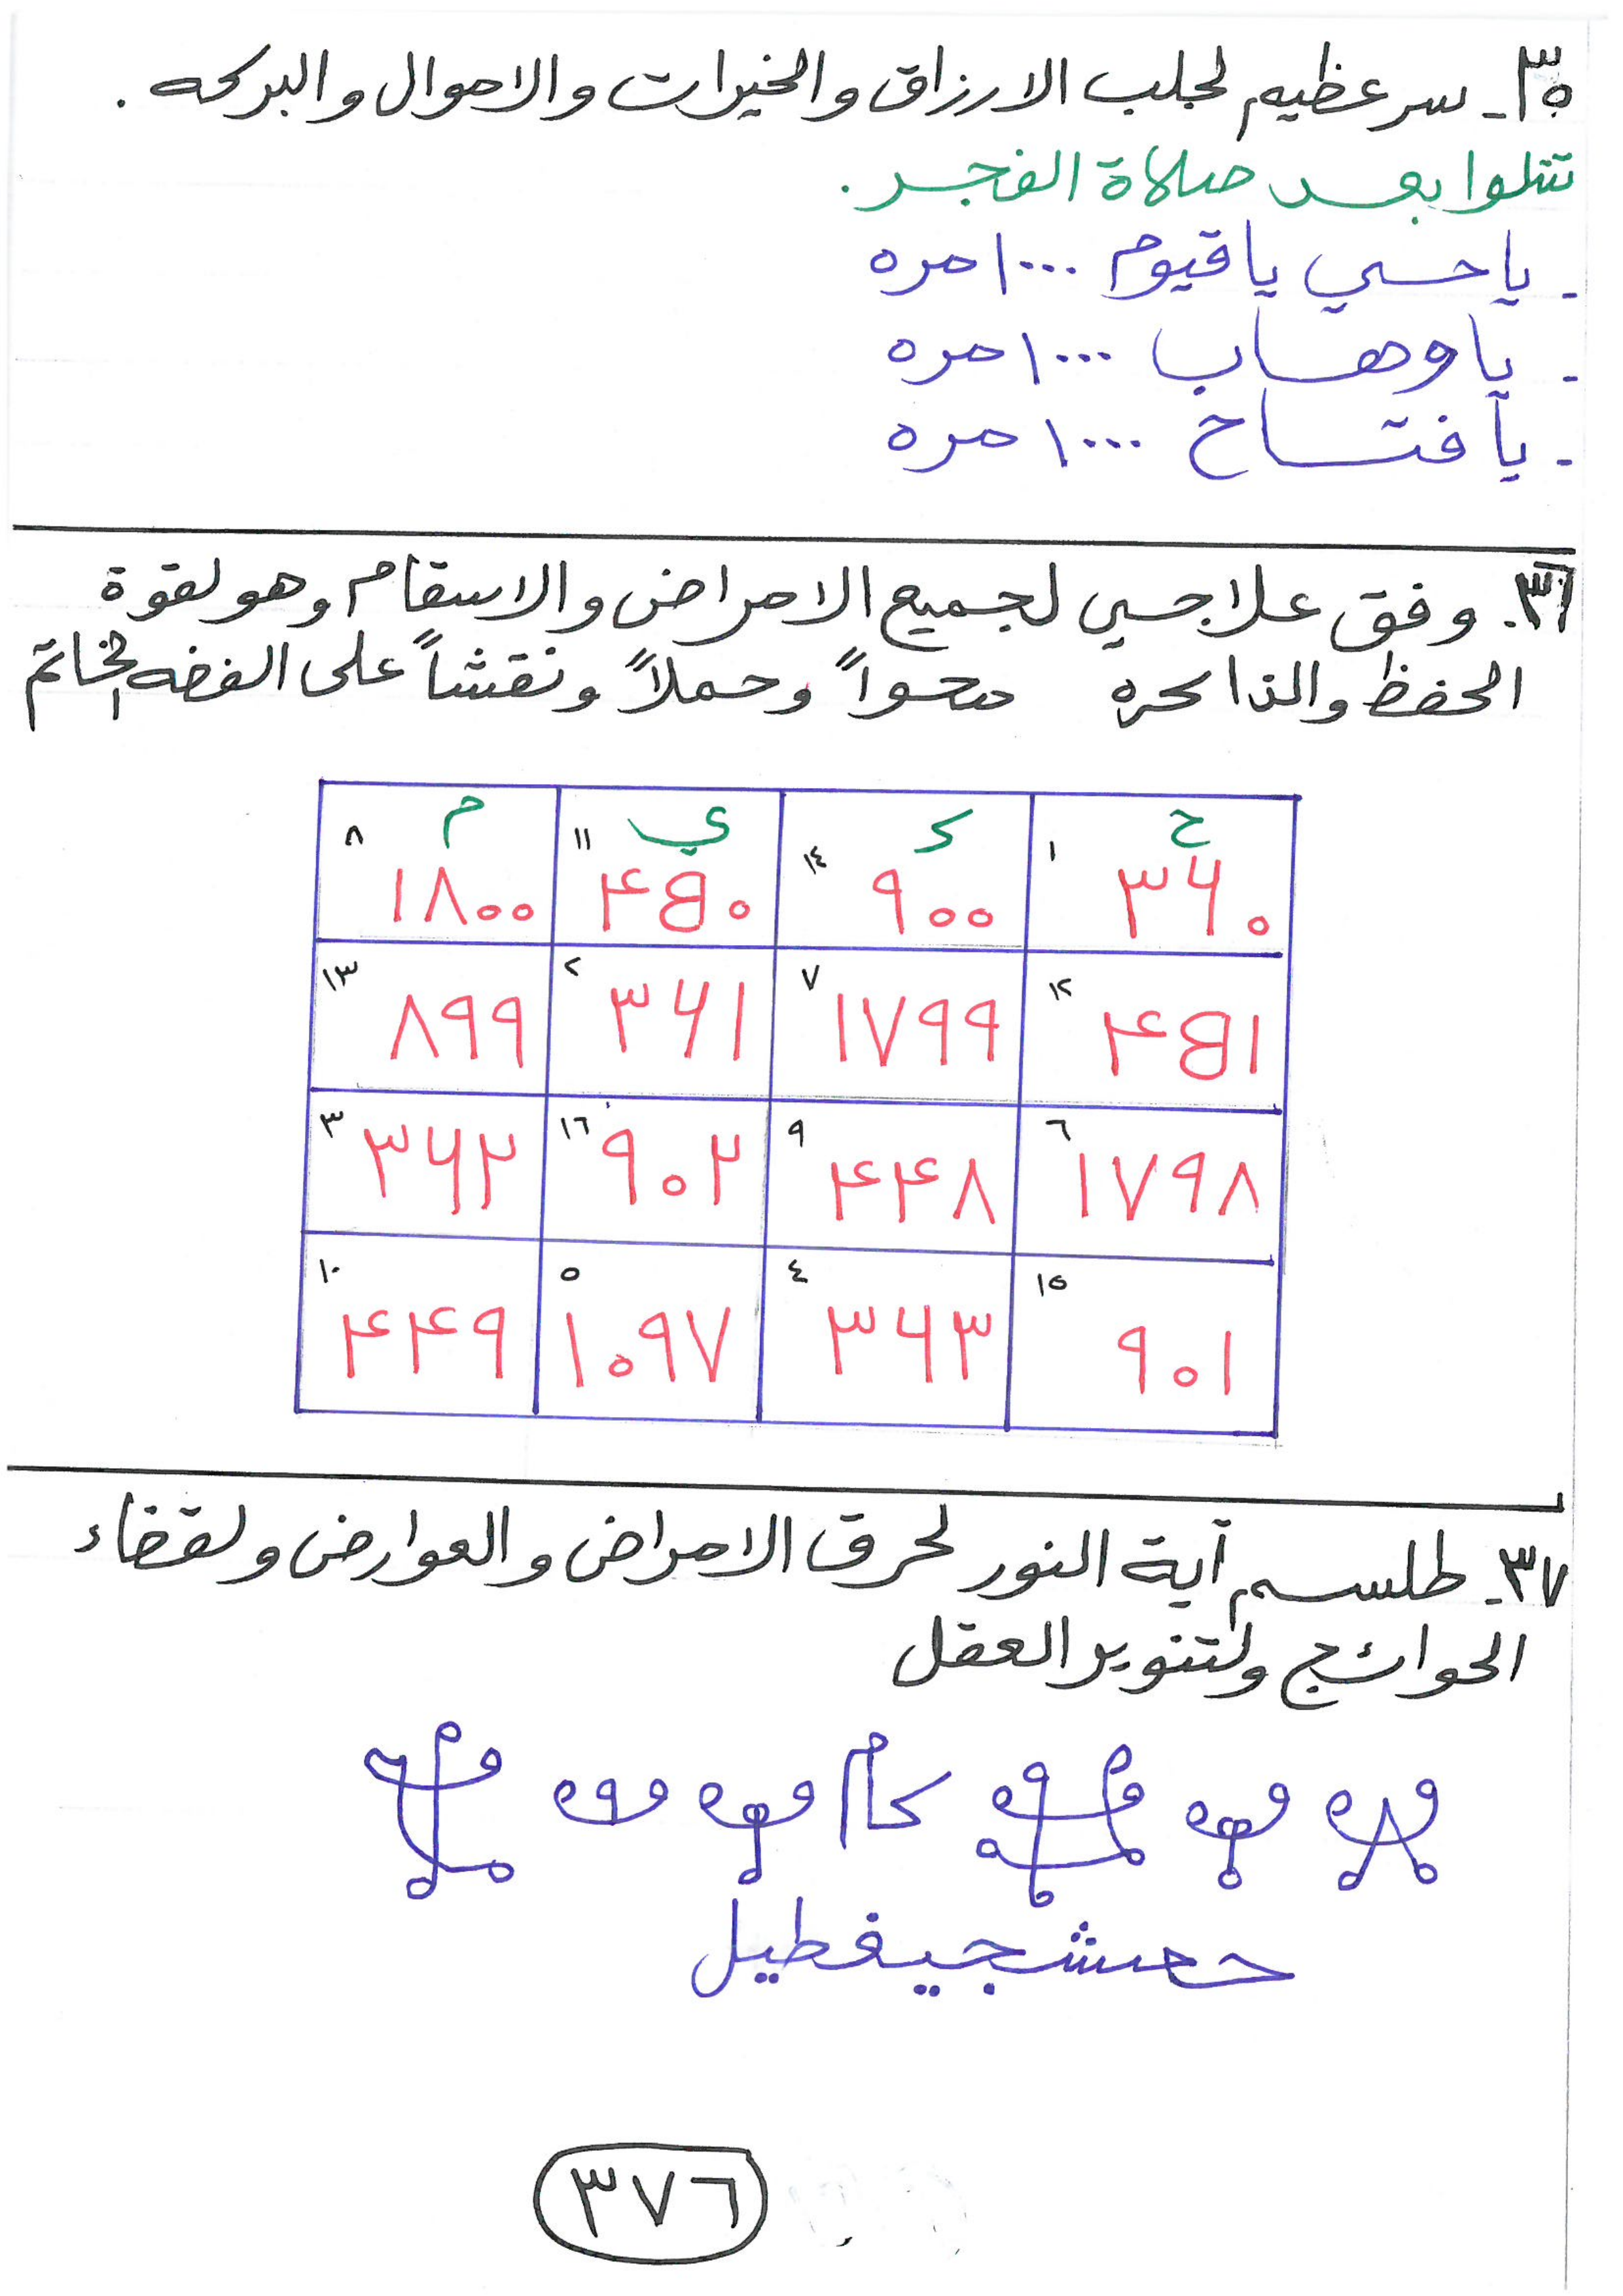 ٣٥- سر عظيم لجلب الارزاق والخيرات والاموال والبركه .
تتلوا بعد صلاة الفجر .
- يا حي يا قيوم ١٠٠٠ مره
- يا وهاب ١٠٠٠ مره
- يا فتاح ١٠٠٠ مره
٣٦- وفق علاجي لجميع الامراض والاسقام وهو لقوة
الحفظ والذاكره محواً وحملاً ونقشاً على الفضه الخاتم
ح ك ي م
١ ٣٦٠ ١٤ ٩٠٠ ١١ ۴۵٠ ٨ ١٨٠٠
١٢ ۴۵١ ٧ ١٧٩٩ ٢ ٣٦١ ١٣ ٨٩٩
٦ ١٧٩٨ ٩ ۴۴٨ ١٦ ٩٠٢ ٣ ٣٦٢
١٥ ٩٠١ ٤ ٣٦٣ ٥ ١٠٩٧ ١٠ ۴۴٩
٣٧- طلسم آية النور لحرق الامراض والعوارض ولقضاء
الحوائج ولتنوير العقل
٣٧٦